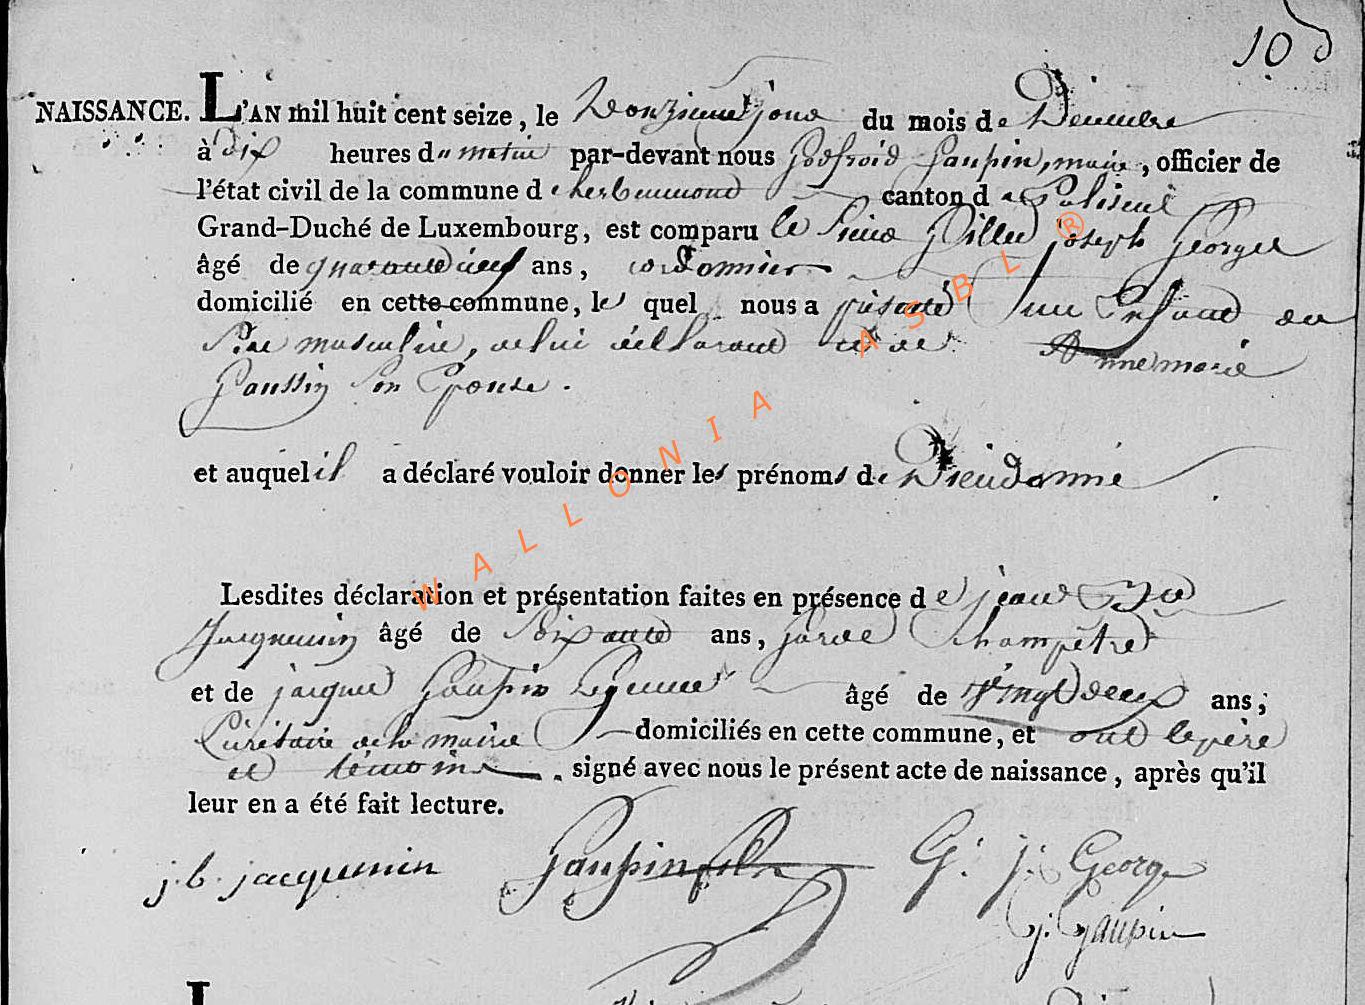 10
NAISSANCE. L'AN mil huit cent seize, le Douzieme jour du mois de Décembre
à dix heures du matin par-devant nous Godfroid Gaupin, maire, officier de
l'état civil de la commune d'herbeumont canton de Paliseul
Grand-Duché de Luxembourg, est comparu le Sieur Gilles joseph Georges
âgé de quarante neuf ans, cordonnier
domicilié en cette commune, lequel nous a présenté un Enfant du
Sexe masculin, de lui déclarant et de Anne marie
son Epouse.
et auquel il a déclaré vouloir donner les prénoms de Dieudonné
Lesdites déclaration et présentation faites en présence de jean Bte
Jacquemin âgé de Soixante ans, garde Champêtre
et de jacques Gaupin âgé de Vingt deux ans;
Sécrétaire de la mairie domiciliés en cette commune, et ont le père
et témoins signé avec nous le présent acte de naissance, après qu'il
leur en a été fait lecture.
j. b. jacquemin Gaupin fils G. j. George
G. Gaupin
L
WALLONIA ASBL ®